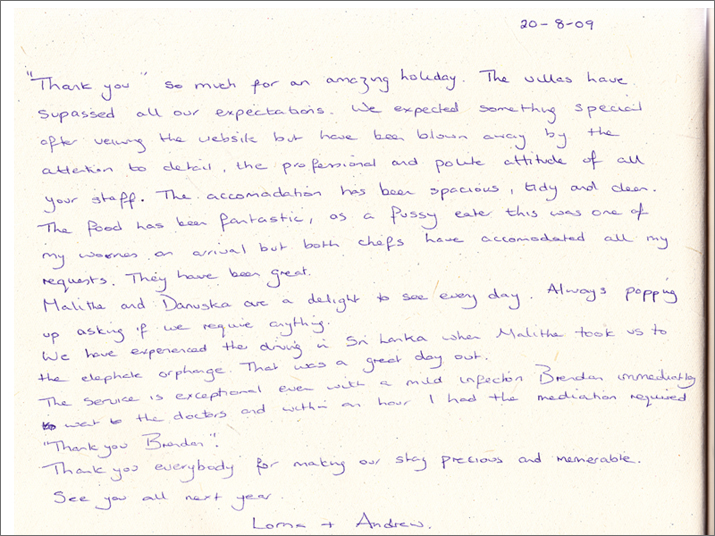 20-8-09
"Thank you" so much for an amazing holiday. The villas have
supassed all our expectations. We expected something special
after veiwing the website but have been blown away by the
attention to detail, the professional and polite attitude of all
your staff. The accomadation has been spacious, tidy and clean.
The food has been fantastic, as a fussy eater this was one of
my worries on arrival but both chefs have accomodated all my
requests. They have been great.
Malithe and Danuska are a delight to see every day. Always popping
up asking if we require anything.
We have experienced the driving in Sri Lanka when Malithe took us to
the elephate orphange. That was a great day out.
The service is exceptional even with a mild infection Brendan immediatley
went to the doctors and within an hour I had the mediation required
"Thank you Brendan".
Thank you everybody for making our stay precious and memerable.
See you all next year.
Lorna + Andrew.